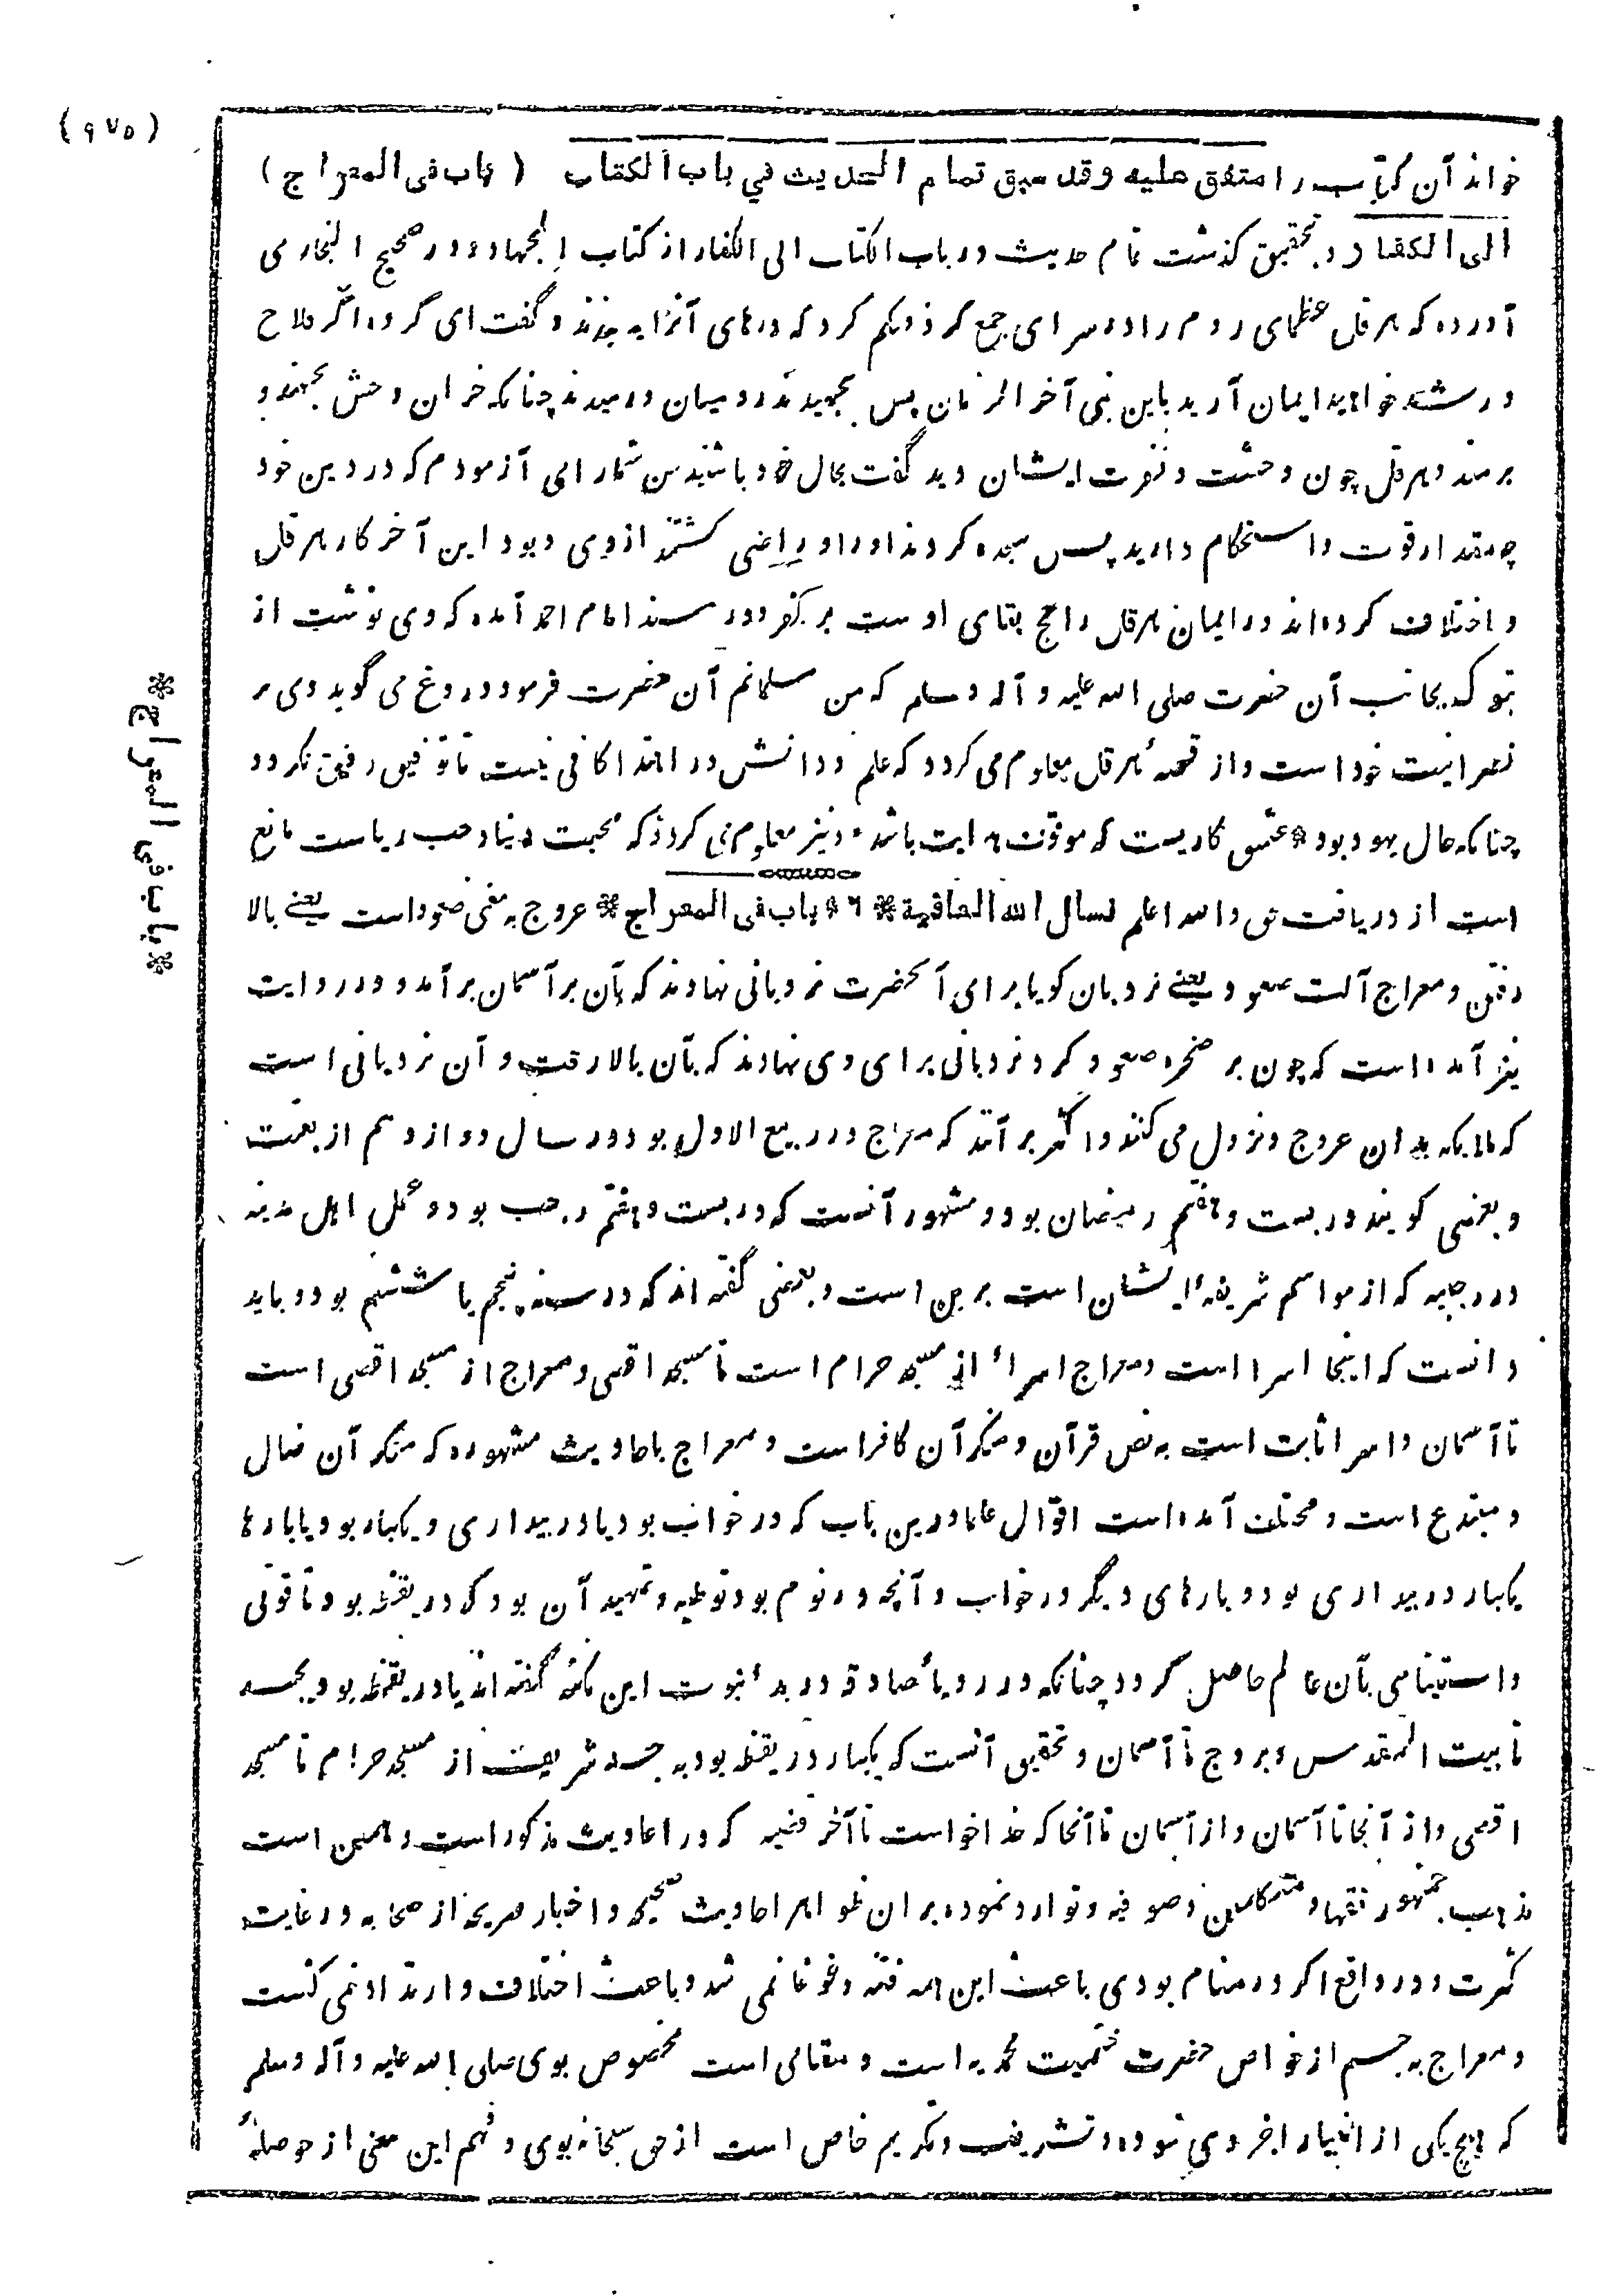 (۹۷۵)
خواند آن کتاب را متفق عليه وقد سبق تمام الحديث في باب الكتاب (باب فی المعراج)
الی الكفار و بتحقیق گذشت تمام حدیث در باب الکتاب الی الکفار از کتاب الجهاد و در صحیح البخاری
آورده که هرقل عظمای روم را در سرای جمع کرد و حکم کرد که درهای آنرا به بندند و گفت ای گروه اگر فلاح
و رشد خواهید ایمان آرید باین نبی آخر الزمان پس بجهیدند رومیان و رمیدند چنانکه خران وحش بجهند و
برمند و هرقل چون وحشت و نفرت ایشان دید گفت بحال خود باشید من شمارا می آزمودم که در دین خود
چه مقدار قوت و استحکام دارید پس سجده کردند او را و راضی گشتند از وی و بود این آخر کار هرقل
و اختلاف کرده‌اند در ایمان هرقل راجح بقای اوست بر کفر و در مسند امام احمد آمده که وی نوشت از
تبوک بجانب آن حضرت صلی الله علیه و آله و سلم که من مسلمانم آن حضرت فرمود دروغ می گوید وی بر
نصرانیت خود است و از قصهٔ هرقل معلوم می گردد که علم و دانش در اهتدا کافی نیست تا توفیق رفیق نگردد
چنانکه حال یهود بود * عشق کاریست که موقوف هدایت باشد * و نیز معلوم می گردد که محبت دنیا و حب ریاست مانع
است از دریافت حق و الله اعلم نسأل الله العافية * ۶ * باب فی المعراج * عروج به معنی صعود است یعنے بالا
رفتن و معراج آلت صعود یعنے نردبان گویا برای آنحضرت نردبانی نهادند که بآن بر آسمان برآمد و در روایت
نیز آمده است که چون بر صخره صعود کرد نردبانی برای وی نهادند که بآن بالا رفت و آن نردبانی است
که ملایکه بدان عروج و نزول می کنند و اکثر برآنند که معراج در ربیع الاول بود در سال دوازدهم از بعثت
و بعضی گویند در بست و هفتم رمضان بود و مشهور آنست که در بست و هفتم رجب بود و عمل اهل مدینه
در رجبیه که از مواسم شریفهٔ ایشان است برین است و بعضی گفته اند که در سنه پنجم یا ششم بود و باید
دانست که اینجا اسرا است و معراج اسراء از مسجد حرام است تا مسجد اقصی و معراج از مسجد اقصی است
تا آسمان و اسرا ثابت است به نص قرآن و منکر آن کافر است و معراج باحادیث مشهوره که منکر آن ضال
و مبتدع است و مختلف آمده است اقوال علما درین باب که در خواب بود یا در بیداری و یکبار بود یا بارها
یکبار در بیداری بود و بارهای دیگر در خواب و آنچه در نوم بود توطیه و تمهید آن بود که در یقظه بود تا قوتی
و استیناسی بآن عالم حاصل گردد چنانکه در رویأ صادقه در بدء نبوت این نکته گفته اند یا در یقظه بود بجسد
تا بیت المقدس و بروح تا آسمان و تحقیق آنست که یکبار در یقظه بود به جسد شریف از مسجد حرام تا مسجد
اقصی و از آنجا تا آسمان و از آسمان تا آنجا که خدا خواست تا آخر قضیه که در احادیث مذکور است و همین است
مذهب جمهور فقها و متکلمین و صوفیه و توارد نموده بران ظواهر احادیث صحیحه و اخبار صریحه از صحابه در غایت
کثرت و در واقع اگر در منام بودی باعث این همه فتنه و غوغا نمی شد و باعث اختلاف و ارتداد نمی گشت
و معراج به جسم از خواص حضرت ختمیت محمدیه است و مقامی است مخصوص بوی صلی الله علیه و آله وسلم
که هیچ یکی از انبیا را جز وی نبوده و تشریف و تکریم خاص است از حق سبحانه بوی و فهم این معنی از حوصلهٔ
* باب فی المعراج *